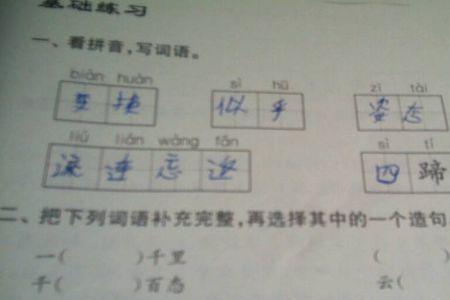 基础练习
一、看拼音,写词语。
biàn huàn sì hū zī tài
变换 似乎 姿态
liú lián wàng fǎn sì tí
流连忘返 四蹄
二、把下列词语补充完整,再选择其中的一个造句
一( )千里 (
千( )百态 云(